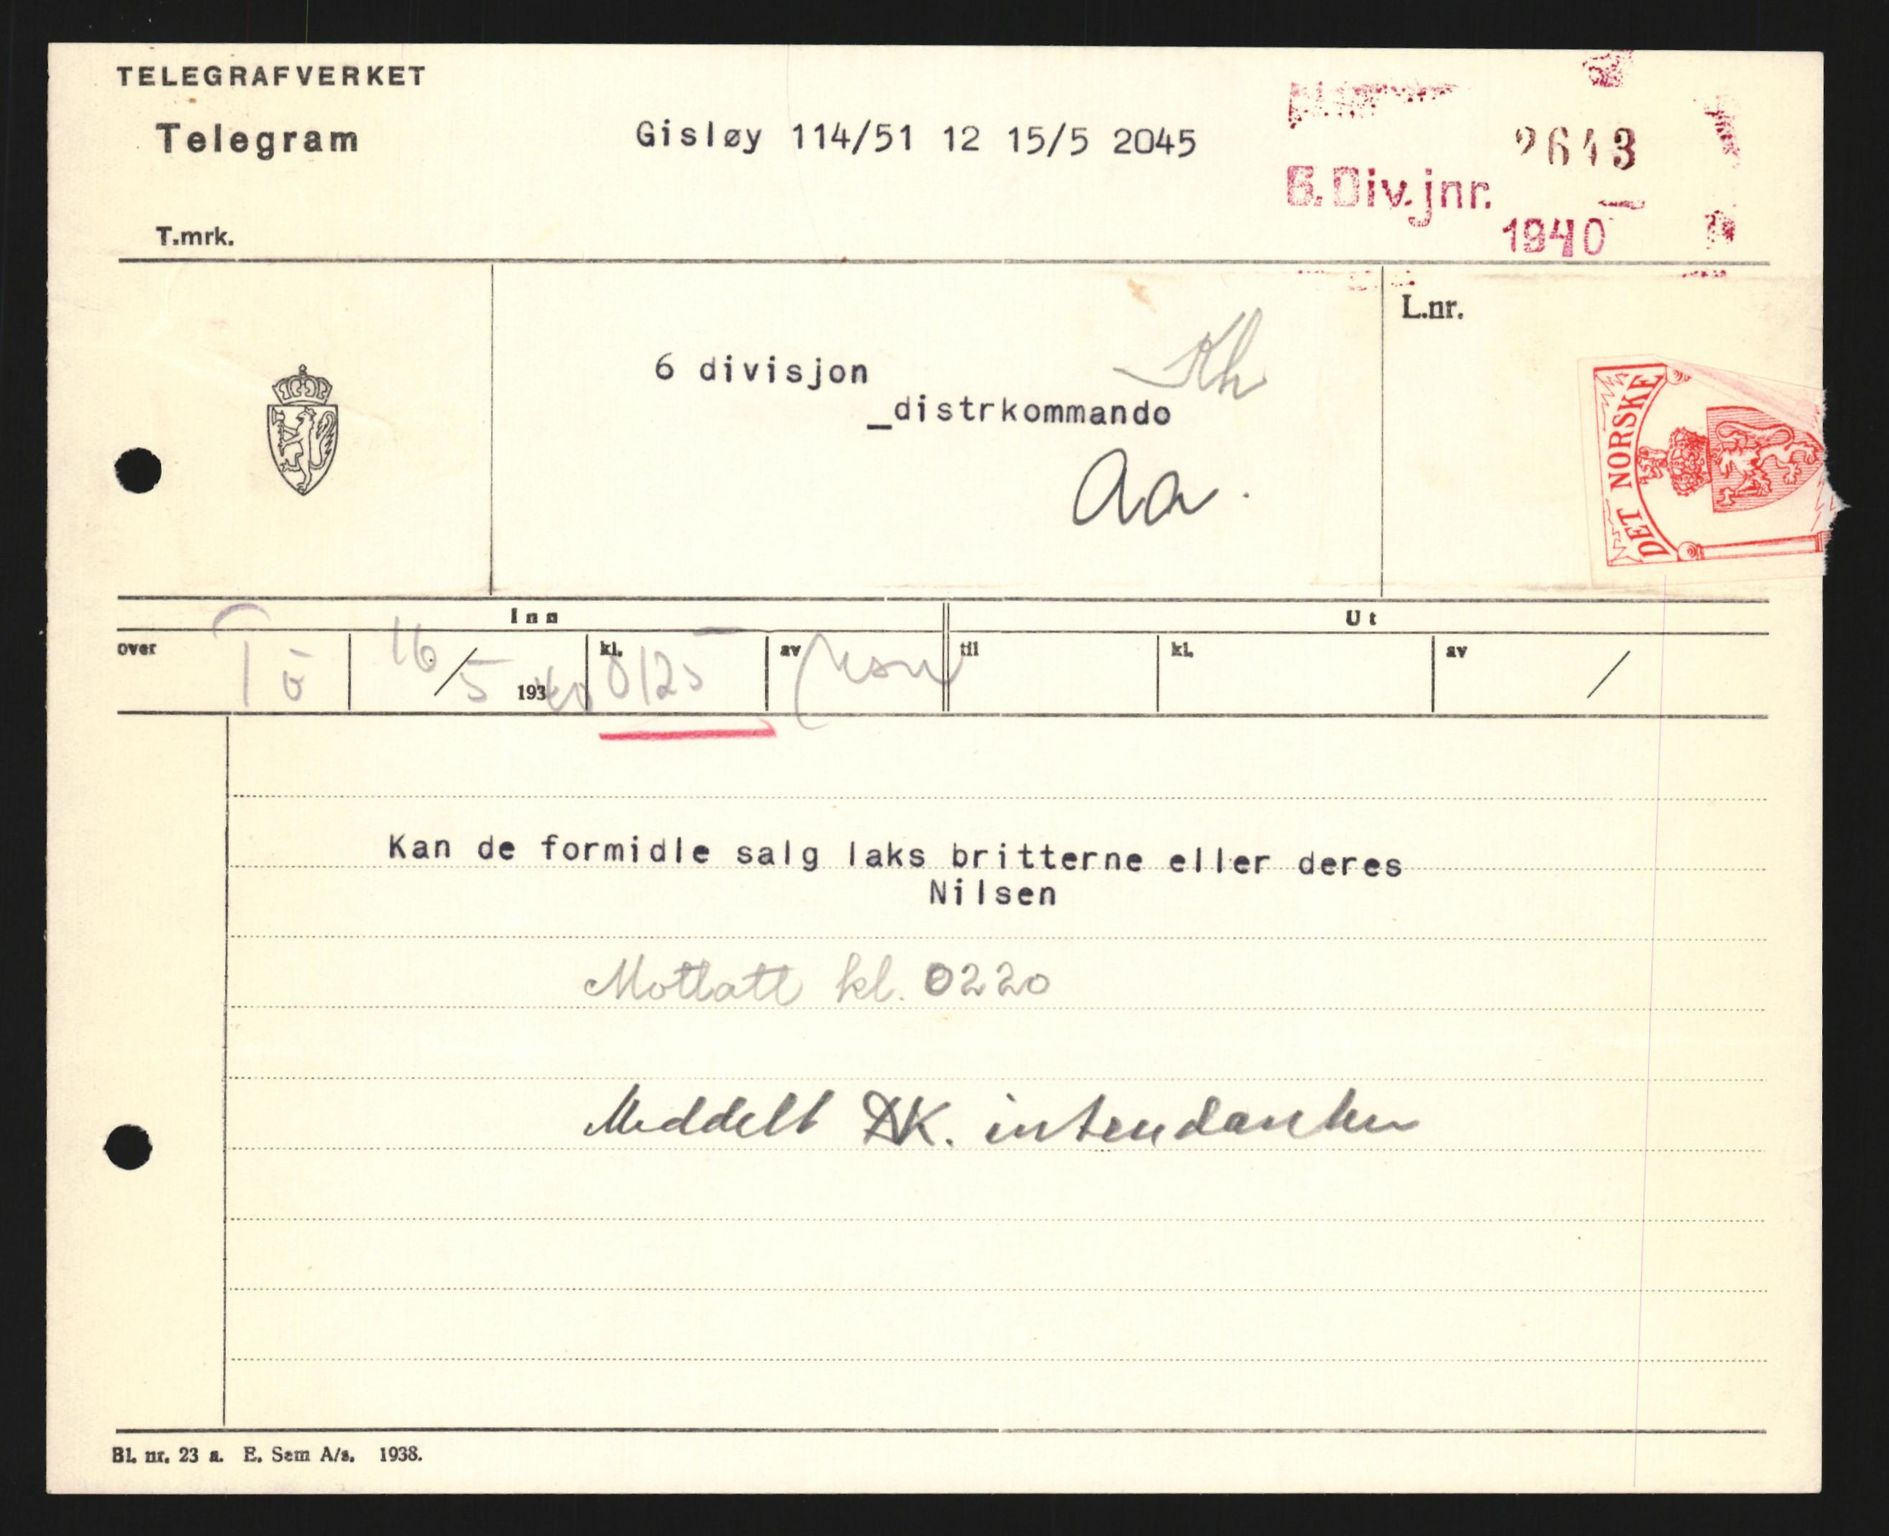 TELEGRAFVERKET
Telegram
Gisløy 114/51 12 15/5 2045
2643
6. Div. jnr.
1940
T.mrk.
L.nr.
6 divisjon
Kh
_distrkommando
Aa.
DET NORSKE
Inn
Ut
over
16/5 1940
kl. 0125
av
til
kl.
av
/
Kan de formidle salg laks britterne eller deres
Nilsen
Mottatt kl. 0220
Meddelt DK. intendanten
Bl. nr. 23 a. E. Sem A/s. 1938.